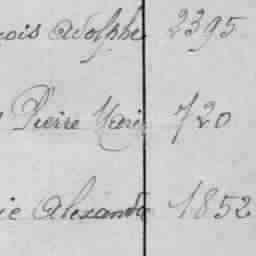 ois Adolphe 2395
Pierre Marie 720
ie Alexandre 1852